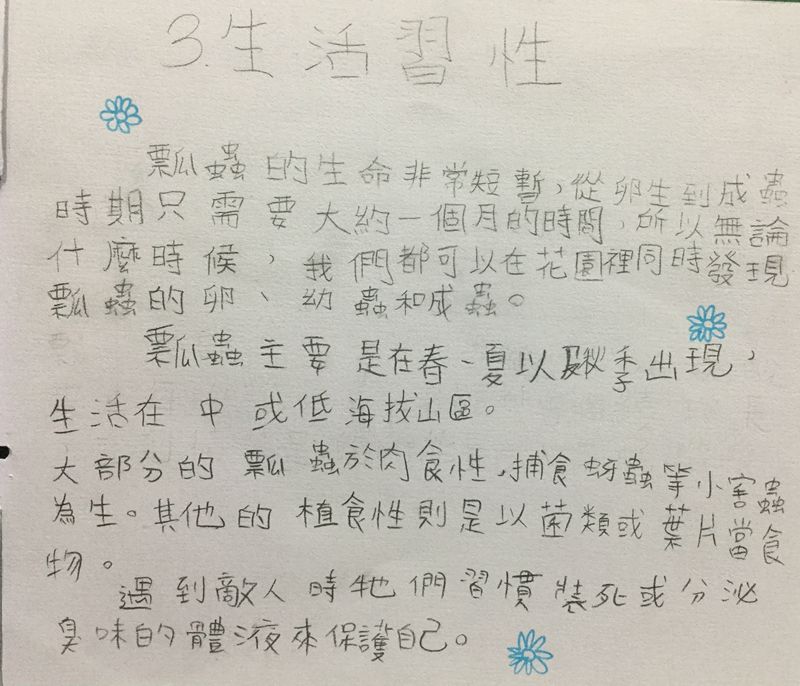 3.生活習性
瓢蟲的生命非常短暫,從卵生到成蟲
時期只需要大約一個月的時間,所以無論
什麼時候,我們都可以在花園裡同時發現
瓢蟲的卵、幼蟲和成蟲。
瓢蟲主要是在春、夏以及秋季出現,
生活在中或低海拔山區。
大部分的瓢蟲於肉食性,捕食蚜蟲等小害蟲
為生。其他的植食性則是以菌類或葉片當食
物。
遇到敵人時牠們習慣裝死或分泌
臭味的體液來保護自己。